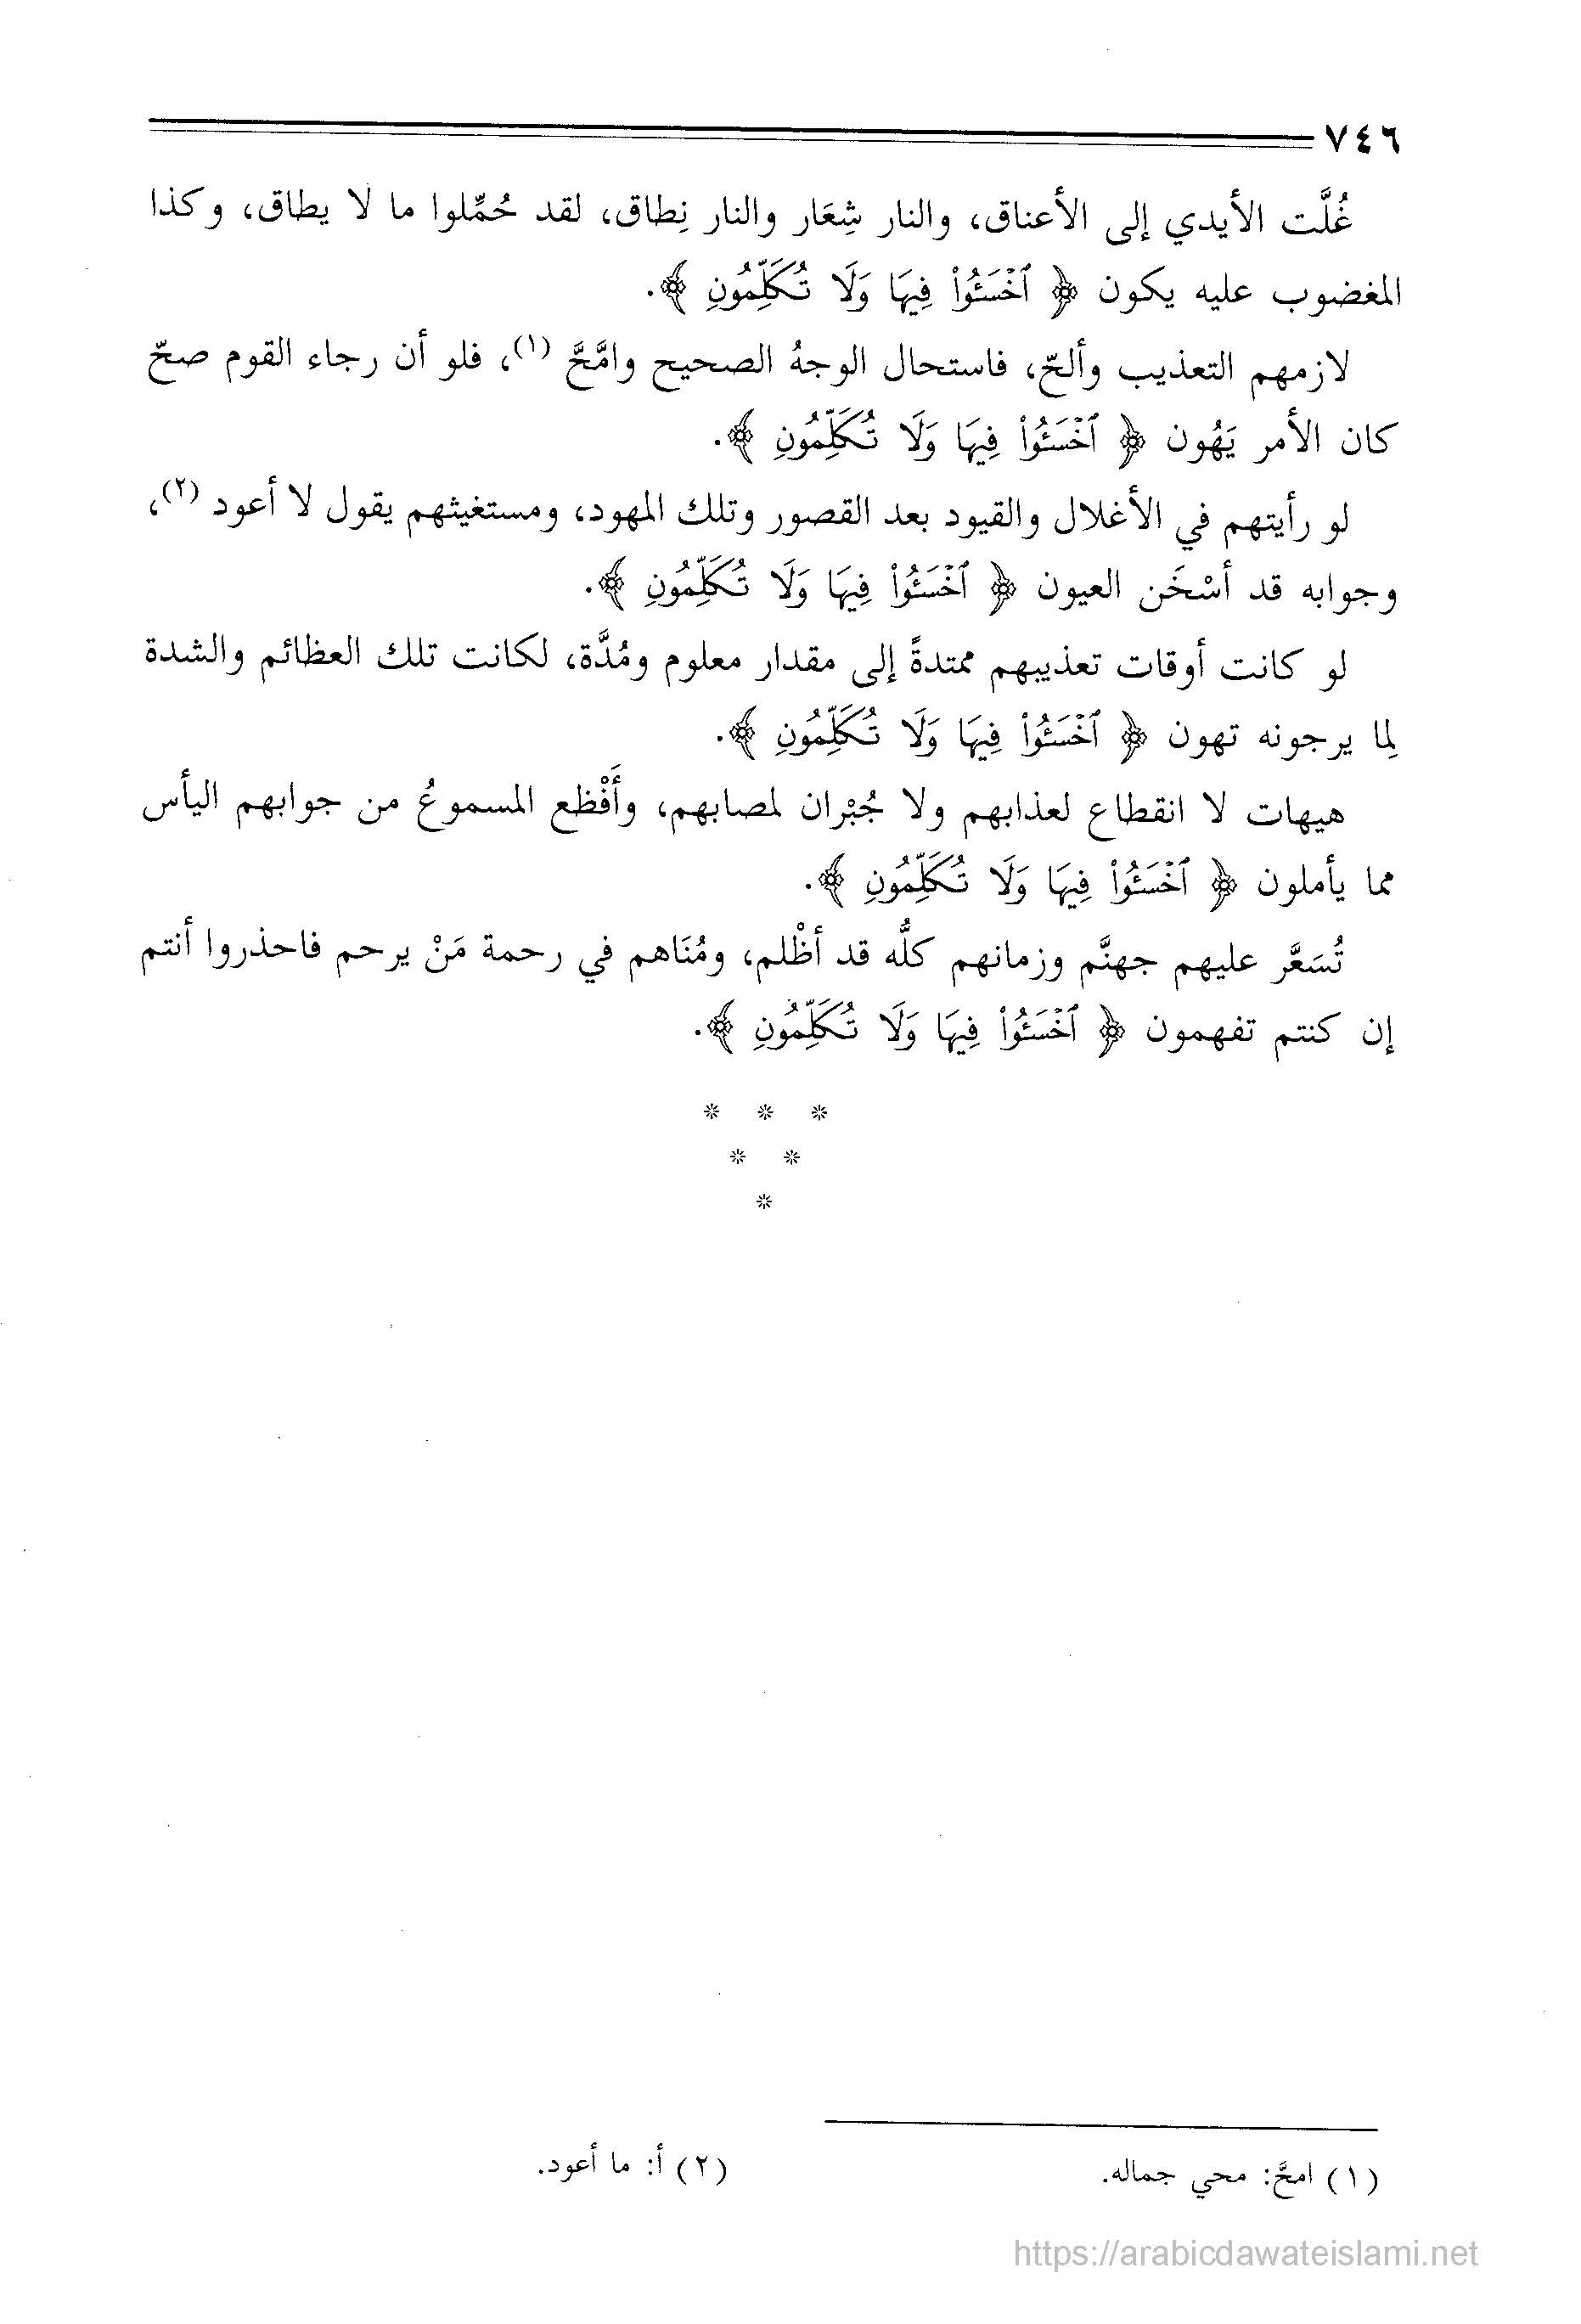 ٧٤٦
غُلَّت الأيدي إلى الأعناق، والنار شِعَار والنار نِطاق، لقد حُمِّلوا ما لا يطاق، وكذا
المغضوب عليه يكون ﴿ ٱخْسَـُٔوا۟ فِيهَا وَلَا تُكَلِّمُونِ ﴾.
لازمهم التعذيب وألحّ، فاستحال الوجهُ الصحيح وامَّحَّ (١)، فلو أن رجاء القوم صحّ
كان الأمر يَهُون ﴿ ٱخْسَـُٔوا۟ فِيهَا وَلَا تُكَلِّمُونِ ﴾.
لو رأيتهم في الأغلال والقيود بعد القصور وتلك المهود، ومستغيثهم يقول لا أعود (٢)،
وجوابه قد أسْخَن العيون ﴿ ٱخْسَـُٔوا۟ فِيهَا وَلَا تُكَلِّمُونِ ﴾.
لو كانت أوقات تعذيبهم ممتدةً إلى مقدار معلوم ومُدَّة، لكانت تلك العظائم والشدة
لِما يرجونه تهون ﴿ ٱخْسَـُٔوا۟ فِيهَا وَلَا تُكَلِّمُونِ ﴾.
هيهات لا انقطاع لعذابهم ولا جُبْران لمصابهم، وأَفْظع المسموعُ من جوابهم اليأس
مما يأملون ﴿ ٱخْسَـُٔوا۟ فِيهَا وَلَا تُكَلِّمُونِ ﴾.
تُسَعَّر عليهم جهنَّم وزمانهم كلُّه قد أظْلم، ومُنَاهم في رحمة مَنْ يرحم فاحذروا أنتم
إن كنتم تفهمون ﴿ ٱخْسَـُٔوا۟ فِيهَا وَلَا تُكَلِّمُونِ ﴾.
* * *
* *
*
(١) امحَّ: محي جماله.
(٢) أ: ما أعود.
https://arabicdawateislami.net